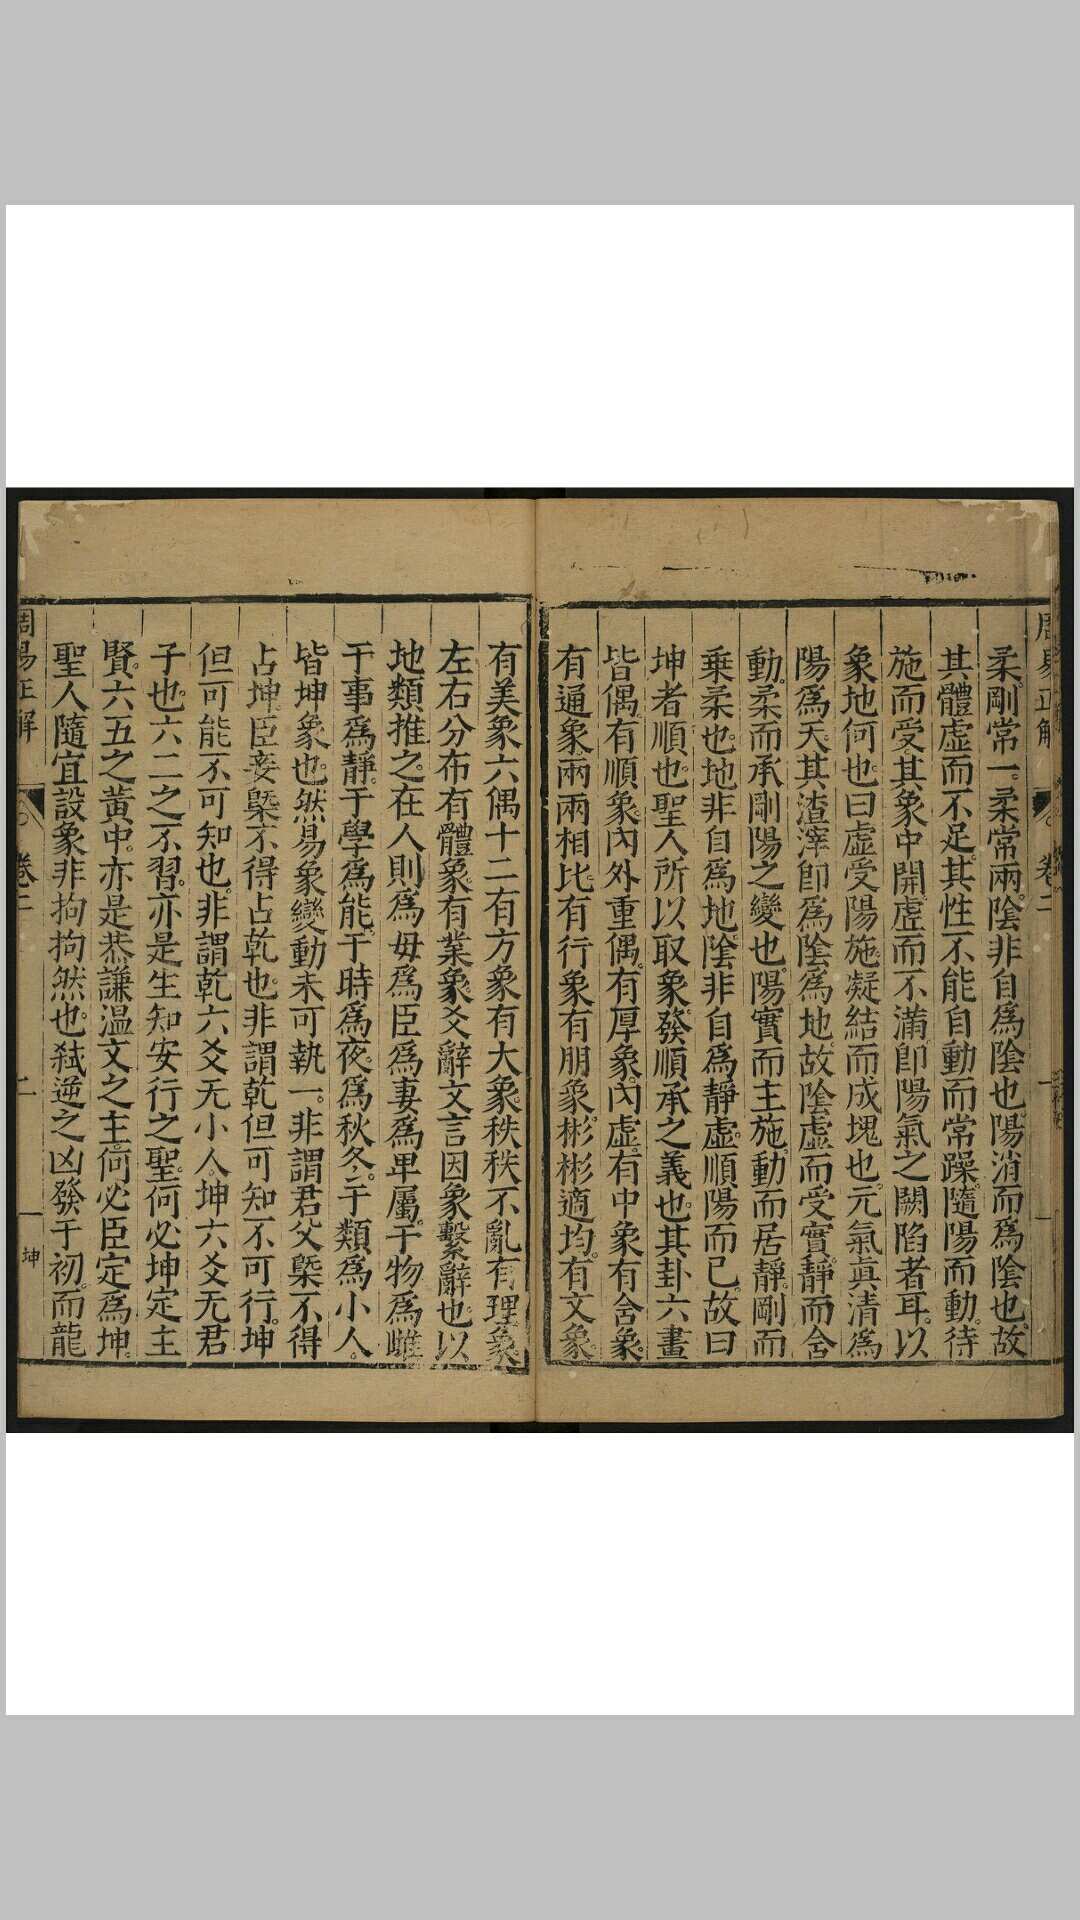 周易正解 卷二 一
柔。剛常一。柔常兩。陰非自爲陰也。陽消而爲陰也。故
其體虛而不足。其性不能自動而常躁。隨陽而動。待
施而受。其象中開。虛而不滿。卽陽氣之闕陷者耳。以
象地何也。曰虛受陽施。凝結而成塊也。元氣眞清爲
陽爲天。其渣滓卽爲陰爲地。故陰虛而受實。靜而舍
動。柔而承剛。陽之變也。陽實而主施。動而居靜。剛而
乘柔也。地非自爲地。陰非自爲靜虛。順陽而已。故曰
坤者順也。聖人所以取象。發順承之義也。其卦六畫
皆偶。有順象。內外重偶。有厚象。內虛。有中象。有舍象。
有通象。兩兩相比。有行象。有朋象。彬彬適均。有文象。
有美象。六偶十二。有方象。有大象。秩秩不亂。有理象。
左右分布。有體象。有業象。爻辭文言。因象繫辭也。以
地類推之。在人則爲母爲臣爲妻爲卑屬。于物爲雌
于事爲靜。于學爲能。于時爲夜。爲秋冬。于類爲小人。
皆坤象也。然易象變動。未可執一。非謂君父槩不得
占坤。臣妾槩不得占乾也。非謂乾但可知不可行。坤
但可能不可知也。非謂乾六爻无小人。坤六爻无君
子也。六二之不習。亦是生知安行之聖。何必坤定主
賢。六五之黃中。亦是恭謙溫文之主。何必臣定爲坤。
聖人隨宜設象。非拘拘然也。弒逆之凶發于初。而龍
周易正解 卷二 二 坤